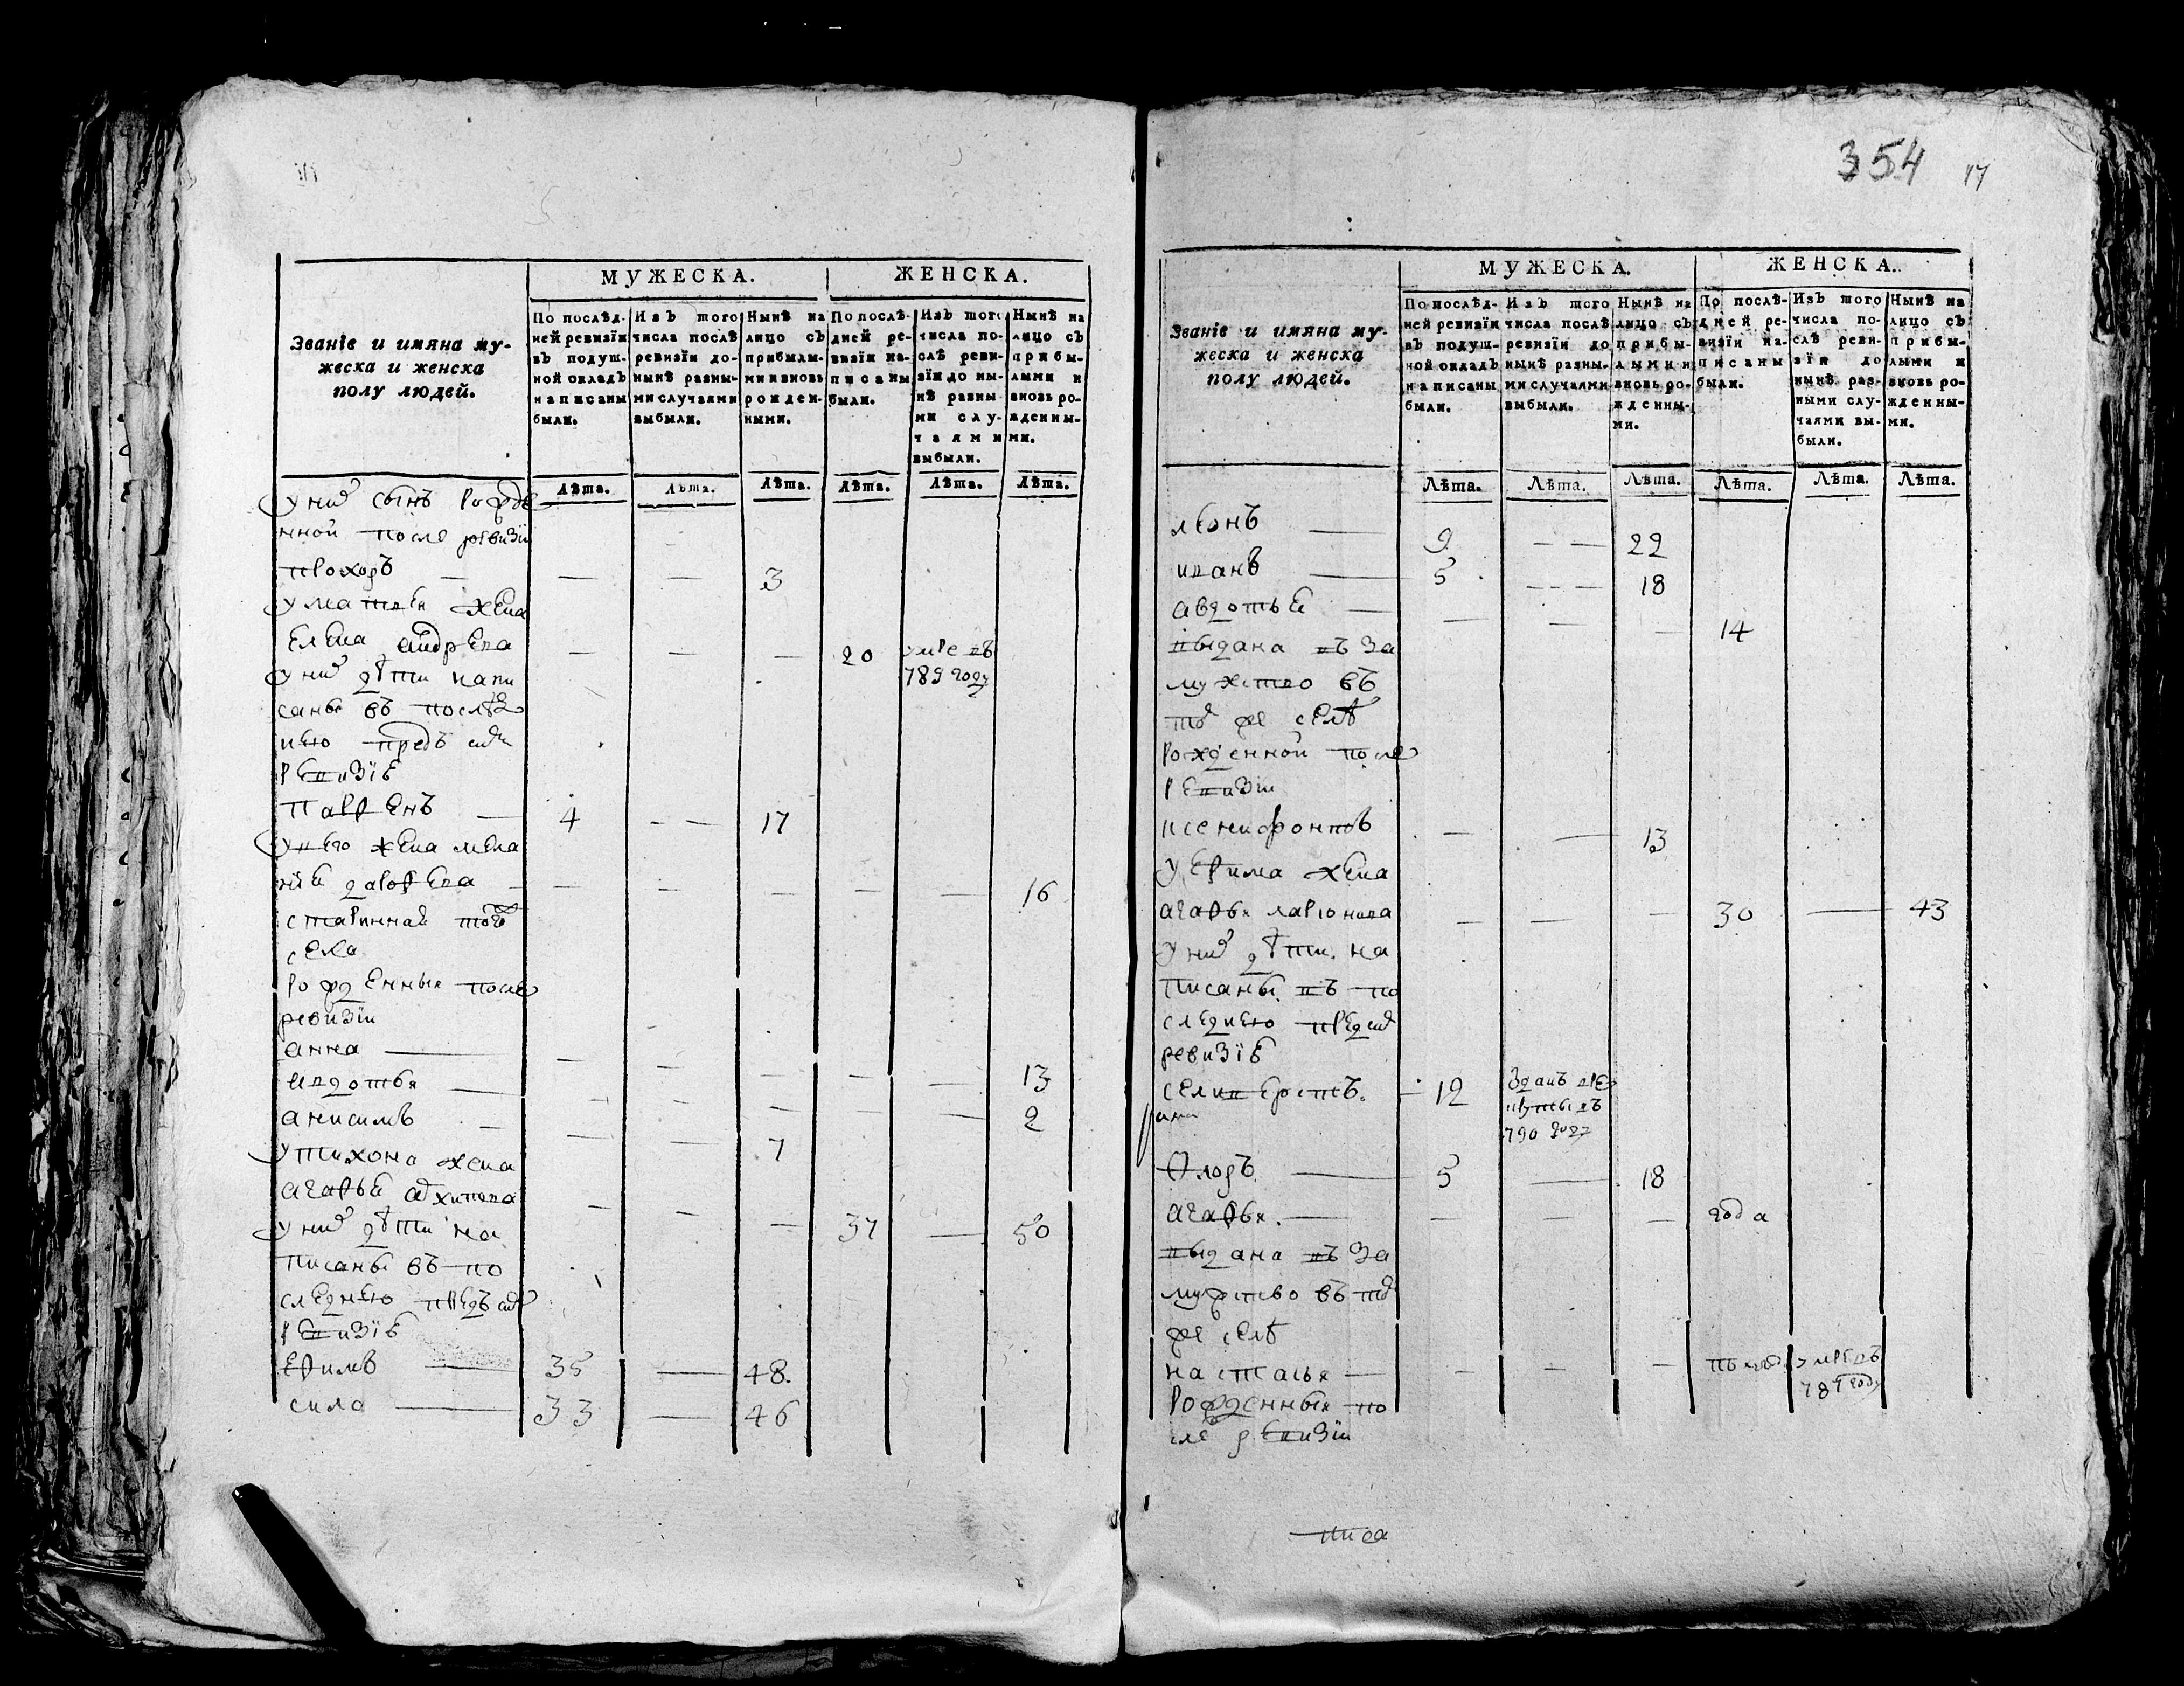 МУЖЕСКА.
ЖЕНСКА.
Званіе и имяна му-
жеска и женска
полу людей.
По послѣд-
ней ревизіи
въ подуш-
ной окладъ
написаны
были.
Изъ того
числа послѣ
ревизіи до-
нынѣ разны-
ми случаями
выбыли.
Нынѣ на
лицо съ
прибылы-
ми и вновь
рожден-
ными.
По послѣ-
дней ре-
визіи на-
писаны
были.
Изъ того
числа по-
слѣ реви-
зіи до ны-
нѣ разны
ми слу-
чаями
выбыли.
Нынѣ на
лицо съ
прибы-
лыми и
вновь ро-
жденны-
ми.
Лѣта. Лѣта. Лѣта. Лѣта. Лѣта. Лѣта.
у них сынъ рожде
нной после ревизіи
прохоръ — — — 3
у матвея жена
елена андреева — — — 20 умре въ
789 году
у них дѣти напи
саны въ послѣд
нею предъ сим
ревизіе
парфенъ — 4 — — 17
у него жена мела
нія — — — — — 16
старинная того
села
рожденныя после
ревизіи
анна — — — — — — 13
авдотья — — — — — — 2
анисимъ — — — 7
у тихона жена
агафья архипова — — — 37 — 50
у них дѣти на
писаны въ по
следнею предъ сим
ревизіе
ефимъ — 35 — 48.
сила — 33 — 46
354 17
МУЖЕСКА.
ЖЕНСКА.
Званіе и имяна му-
жеска и женска
полу людей.
По послѣд-
ней ревизіи
въ подуш-
ной окладъ
написаны
были.
Изъ того
числа послѣ
ревизіи до
нынѣ разны-
ми случаями
выбыли.
Нынѣ на
лицо съ
прибы-
лыми и
вновь ро-
жденны-
ми.
По послѣ-
дней ре-
визіи на-
писаны
были.
Изъ того
числа по-
слѣ реви-
зіи до
нынѣ раз-
ными слу-
чаями вы-
были.
Нынѣ на
лицо съ
прибы-
лыми и
вновь ро-
жденны-
ми.
Лѣта. Лѣта. Лѣта. Лѣта. Лѣта. Лѣта.
леонъ — 9 — — 22
иванъ — 5 — — 18
авдотья — — — — 14
выдана въ за
мужство въ
том же селѣ
рожденной после
ревизіи
ксенифонтъ — — 13
у ефима жена
агафья ларіонова — — — 30 — 43
у них дѣти на
писаны въ по
следнею пред сим
ревизіе
селиверстъ. 12 зданъ в ре
круты въ
790 году
флоръ — 5 — 18
агафья. — — — — года
выдана въ за
мужство въ том
же селѣ
настасья — — — — умре въ
789 году
рожденныя по
сле ревизіи